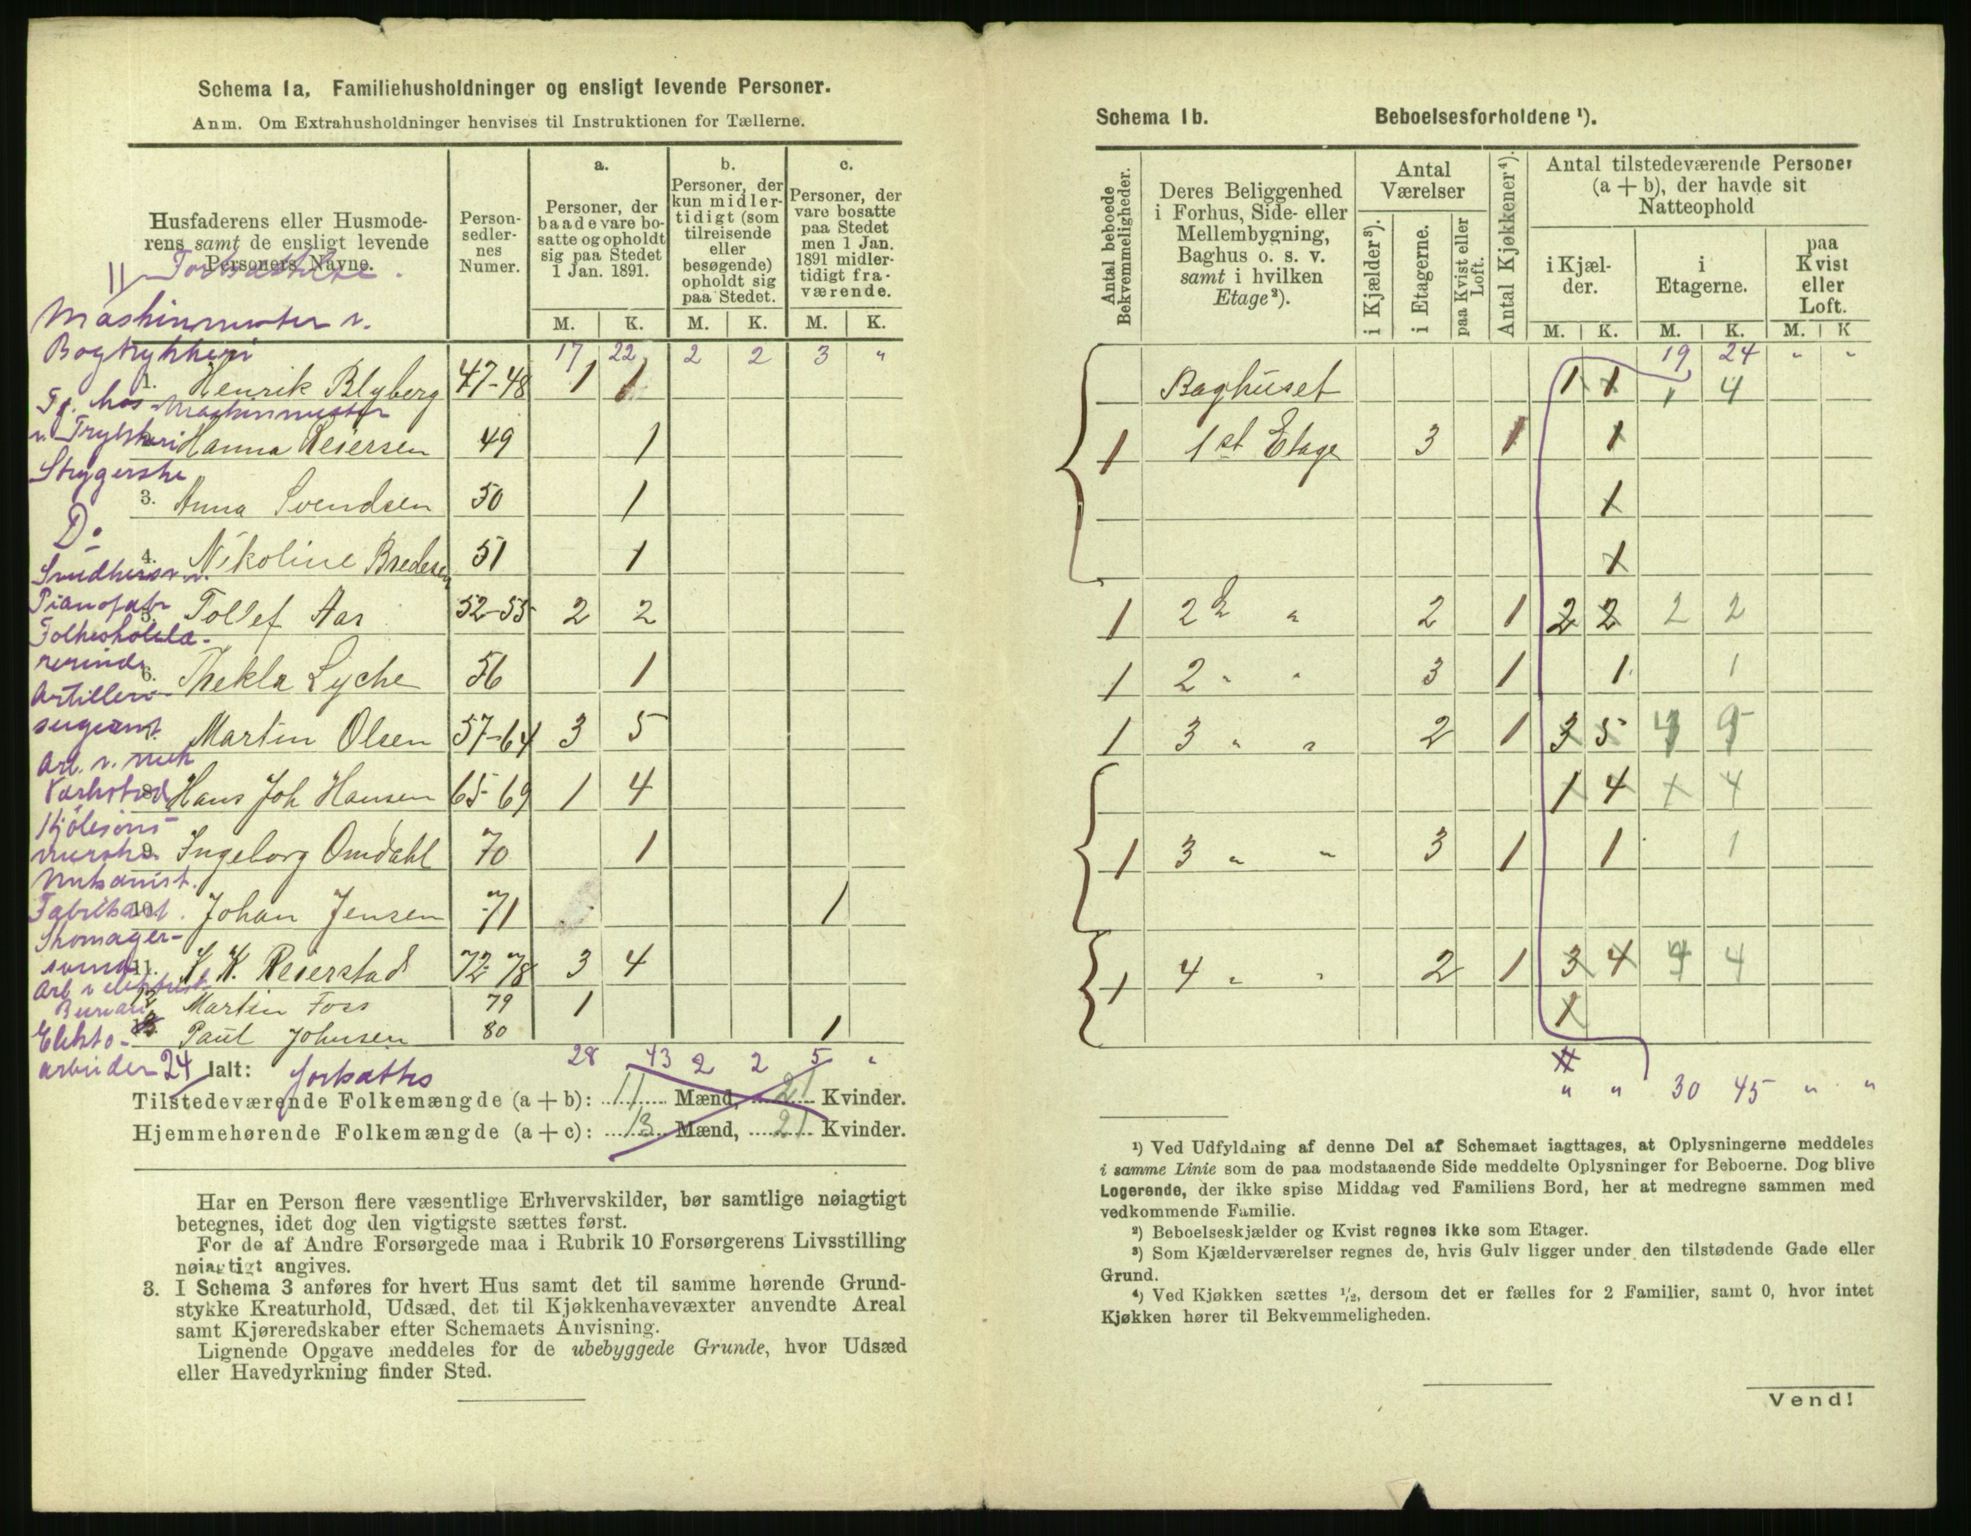 Schema 1a. Familiehusholdninger og ensligt levende Personer.
Anm. Om Extrahusholdninger henvises til Instruktionen for Tællerne.
Husfaderens eller Husmode-
rens samt de ensligt levende
Personers Navne.
Person-
sedler-
nes
Numer.
a.
Personer, der
baade vare bo-
satte og opholdt
sig paa Stedet
1 Jan. 1891.
b.
Personer, der
kun midler-
tidigt (som
tilreisende
eller
besøgende)
opholdt sig
paa Stedet.
c.
Personer, der
vare bosatte
paa Stedet
men 1 Jan.
1891 midler-
tidigt fra-
værende.
M. K. M. K. M. K.
Maskinmester v.
Bogtrykkeri
17 22 2 2 3 "
1. Henrik Blyberg 47-48 1 1
Fr. hos Maskinmester
v. Trykkeri Hanna Reiersen 49 1
Strygerske
3. Anna Svendsen 50 1
Do
4. Nikoline Bredesen 51 1
Pianofabr
5. Tollef Aas 52-55 2 2
Folkeskolelæ-
rerinde
6. Thekla Lyche 56 1
Artilleri-
sergeant
7. Martin Olsen 57-64 3 5
Arb. v. mek
Værksted
8. Hans Joh Hansen 65-69 1 4
9. Ingeborg Omdahl 70 1
Fabrikant.
10. Johan Jensen 71 1
Skomager-
svend
11. K. K. Reierstad 72-78 3 4
12 Martin Foss 79 1
Paul Johnsen 80 1
Elektr-
arbeider 24 Ialt: fortsættes 28 43 2 2 5 "
Tilstedeværende Folkemængde (a + b): 11 Mænd, 21 Kvinder.
Hjemmehørende Folkemængde (a + c): 13 Mænd, 21 Kvinder.
Har en Person flere væsentlige Erhvervskilder, bør samtlige nøiagtigt
betegnes, idet dog den vigtigste sættes først.
For de af Andre Forsørgede maa i Rubrik 10 Forsørgerens Livsstilling
nøiagtigt angives.
3. I Schema 3 anføres for hvert Hus samt det til samme hørende Grund-
stykke Kreaturhold, Udsæd, det til Kjøkkenhavevæxter anvendte Areal
samt Kjøreredskaber efter Schemaets Anvisning.
Lignende Opgave meddeles for de ubebyggede Grunde, hvor Udsæd
eller Havedyrkning finder Sted.
Schema 1b. Beboelsesforholdene ¹).
Antal beboede
Bekvemmeligheder.
Deres Beliggenhed
i Forhus, Side- eller
Mellembygning,
Baghus o. s. v.
samt i hvilken
Etage²).
Antal
Værelser
i Kjælder³).
i Etagerne.
paa Kvist eller
Loft.
Antal Kjøkkener⁴).
Antal tilstedeværende Personer
(a + b), der havde sit
Natteophold
i Kjæl-
der.
i
Etagerne.
paa
Kvist
eller
Loft.
M. K. M. K. M. K
19 24 " "
Baghuset 1 1 1 4
1 1st Etage 3 1 1
1
1
1 2d " 2 1 2 2 2 2
1 2 " " 3 1 1 1
1 3 " " 2 1 3 5 5
1 4 4
1 3 " " 3 1 1 1
1 4 " " 2 1 3 4 4
1
" " 30 45 " "
¹) Ved Udfyldning af denne Del af Schemaet iagttages, at Oplysningerne meddeles
i samme Linie som de paa modstaaende Side meddelte Oplysninger for Beboerne. Dog blive
Logerende, der ikke spise Middag ved Familiens Bord, her at medregne sammen med
vedkommende Familie.
²) Beboelseskjælder og Kvist regnes ikke som Etager.
³) Som Kjælderværelser regnes de, hvis Gulv ligger under den tilstødende Gade eller
Grund.
⁴) Ved Kjøkken sættes ½, dersom det er fælles for 2 Familier, samt 0, hvor intet
Kjøkken hører til Bekvemmeligheden.
Vend!